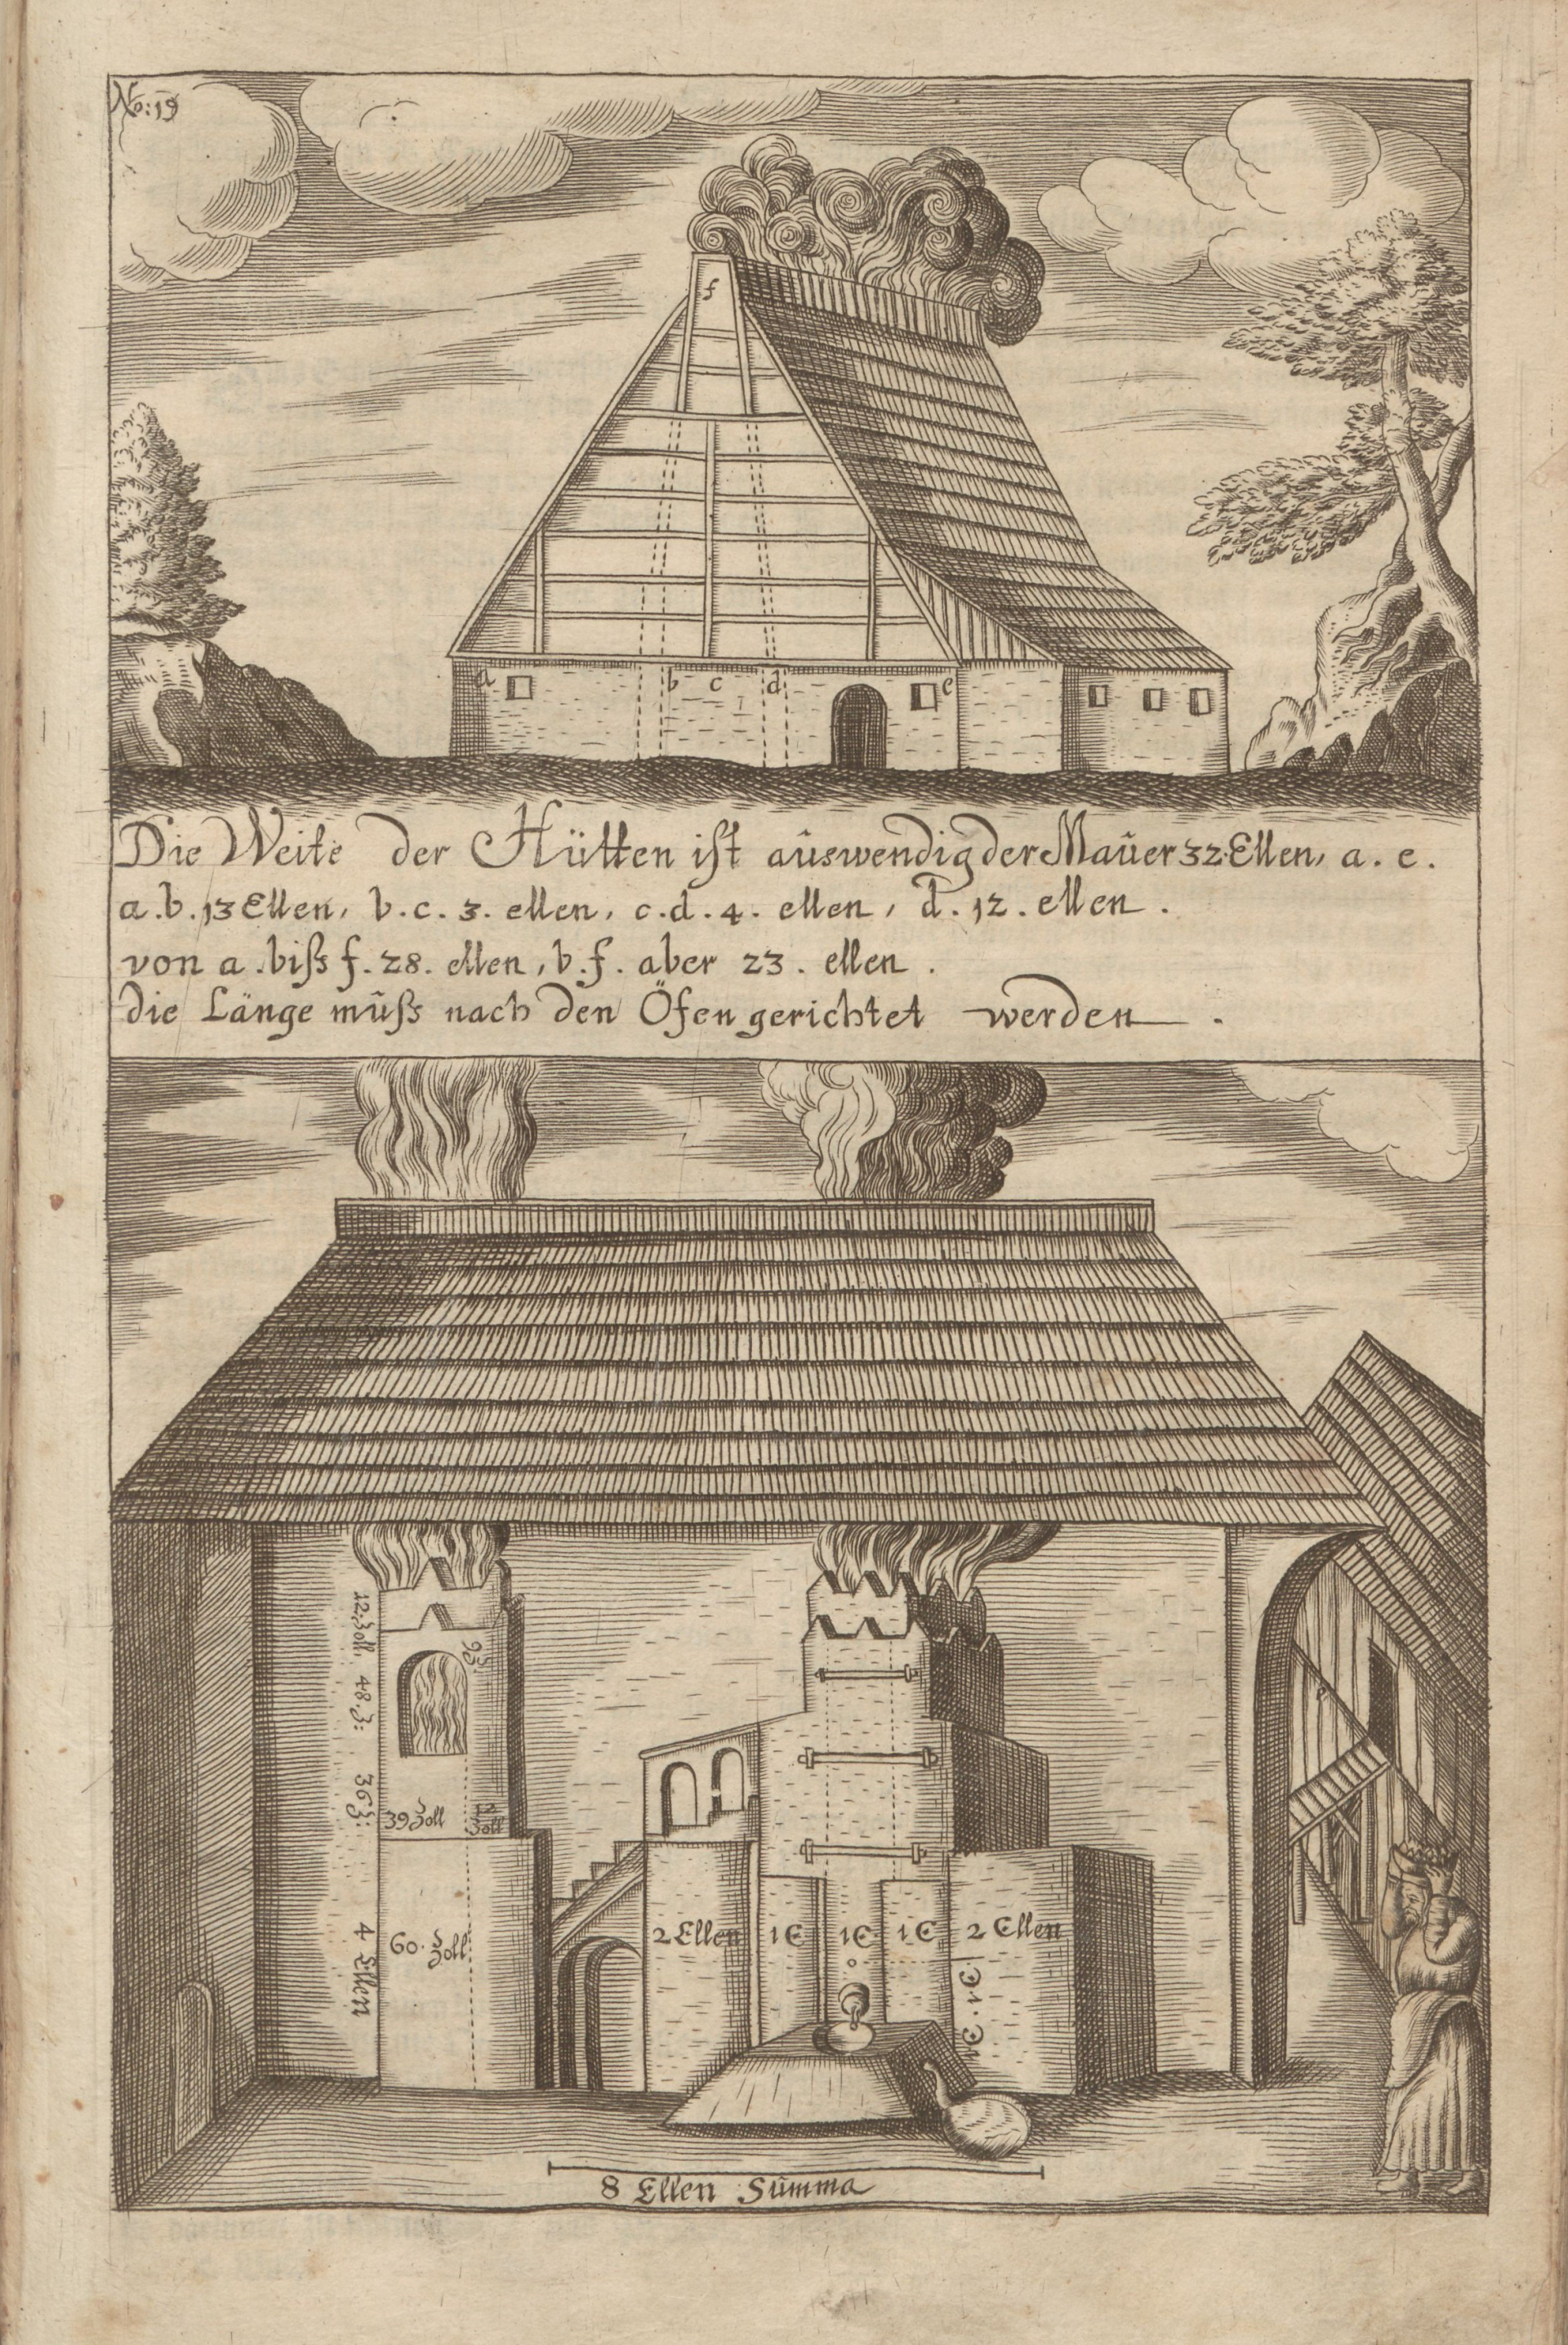 No: 19
f
a b c d e
Die Weite der Hütten ist aûswendig der Maûer 32. Ellen, a. e.
a. b. 13 Ellen, b. c. 3. ellen, c. d. 4. ellen, d. 12. ellen.
von a. biſs f. 28. ellen, b. f. aber 23. ellen.
die Länge mûſs nach den Öfen gerichtet werden.
12. Zoll,
48. z:
36 z:
4 Ellen
39 Zoll
12 Zoll
60. Zoll
2 Ellen 1 E 1 E 1 E 2 Ellen
8 Ellen Sûmma